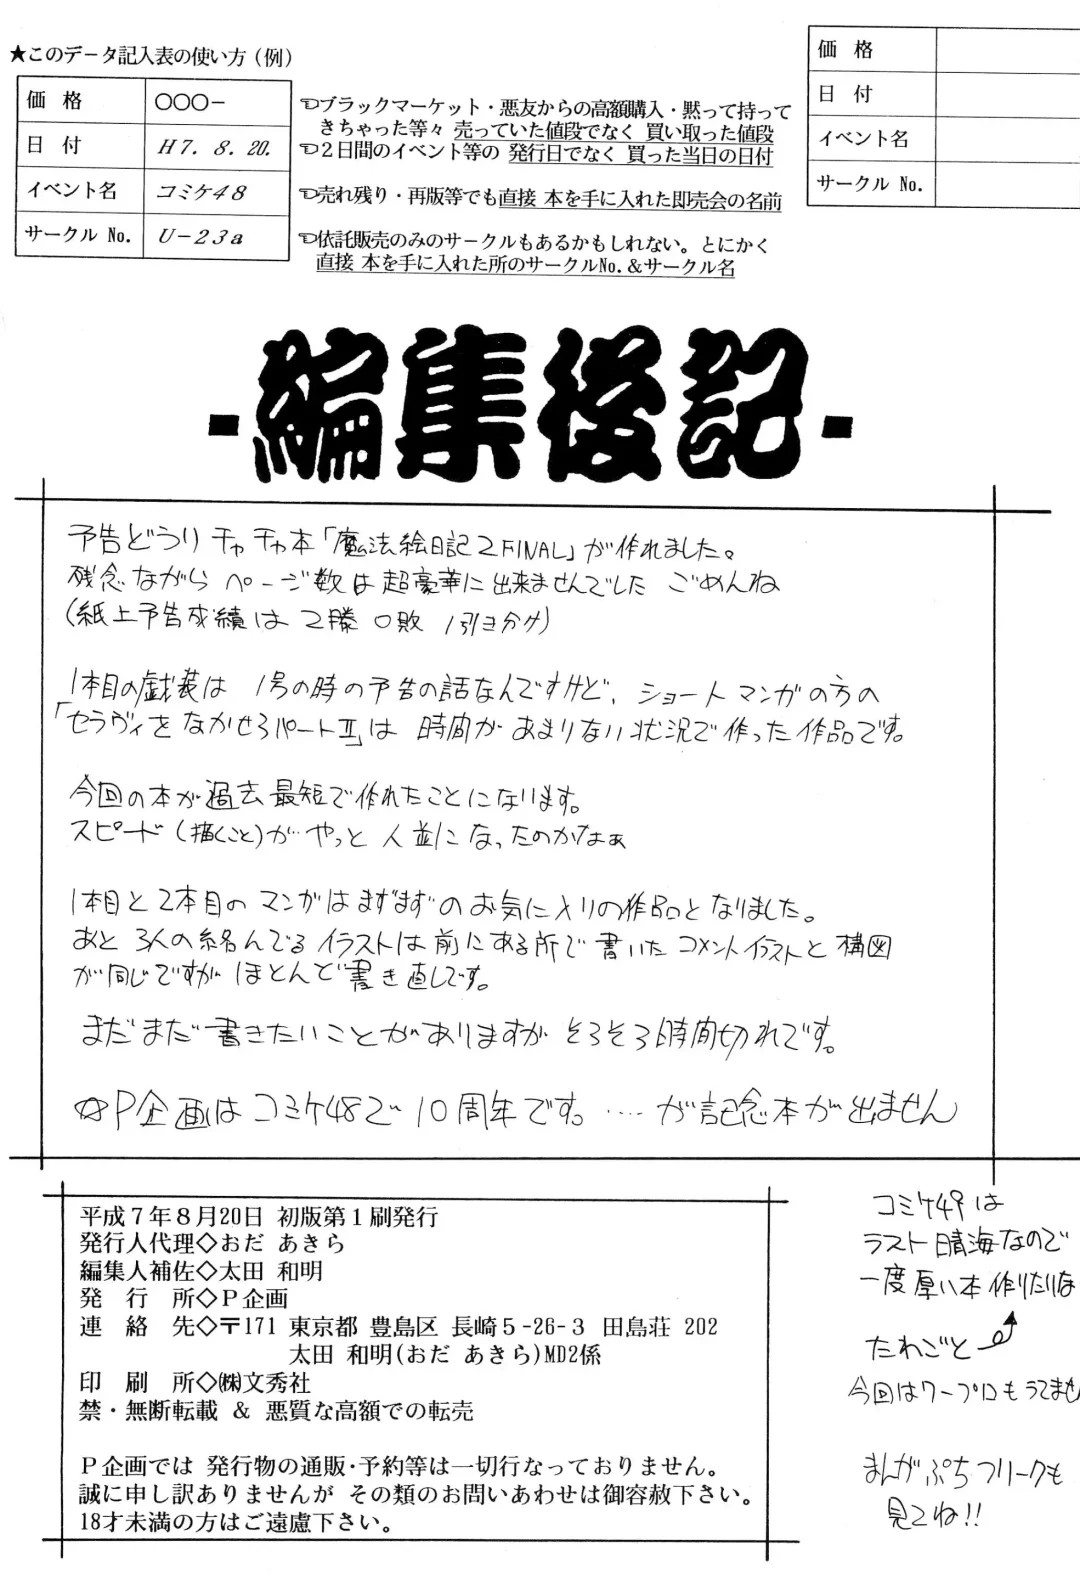 ★このデータ記入表の使い方（例）
価 格 ○○○-
日 付 H7. 8. 20.
イベント名 コミケ48
サークル No. U-23a
☜ブラックマーケット・悪友からの高額購入・黙って持って
きちゃった等々 売っていた値段でなく 買い取った値段
☜2日間のイベント等の 発行日でなく 買った当日の日付
☜売れ残り・再版等でも直接 本を手に入れた即売会の名前
☜依託販売のみのサークルもあるかもしれない。とにかく
直接 本を手に入れた所のサークルNo.＆サークル名
価 格
日 付
イベント名
サークル No.
-編集後記-
予告どうり チャチャ本「魔法絵日記2FINAL」が作れました。
残念ながら ページ数は超豪華に出来ませんでした ごめんね
(紙上予告成績は 2勝 0敗 1引き分け)
1本目の戯装は 1号の時の予告の話なんですけど、ショートマンガの方の
「セラヴィをなかせろパートⅡ」は 時間があまりない状況で作った作品です。
今回の本が過去最短で作れたことになります。
スピード(描くこと)が やっと 人並になったのかなぁ
1本目と2本目の マンガはまずまずのお気に入りの作品となりました。
あと 3人の絡んでる イラストは前にある所で書いた コメントイラストと 構図
が同じですが ほとんど書き直しです。
まだまだ書きたいことがありますが そろそろ時間切れです。
☆P企画はコミケ48で 10周年です。‥‥が記念本が出ません
平成7年8月20日 初版第1刷発行
発行人代理◇おだ あきら
編集人補佐◇太田 和明
発 行 所◇P企画
連 絡 先◇〒171 東京都 豊島区 長崎5-26-3 田島荘 202
太田 和明(おだ あきら)MD2係
印 刷 所◇㈱文秀社
禁・無断転載 ＆ 悪質な高額での転売
P企画では 発行物の通販・予約等は一切行なっておりません。
誠に申し訳ありませんが その類のお問いあわせは御容赦下さい。
18才未満の方はご遠慮下さい。
コミケ49は
ラスト晴海なので
一度厚い本作りたいな
たわごと
今回はワープロもうてませ
まんがぷちフリークも
見てね!!